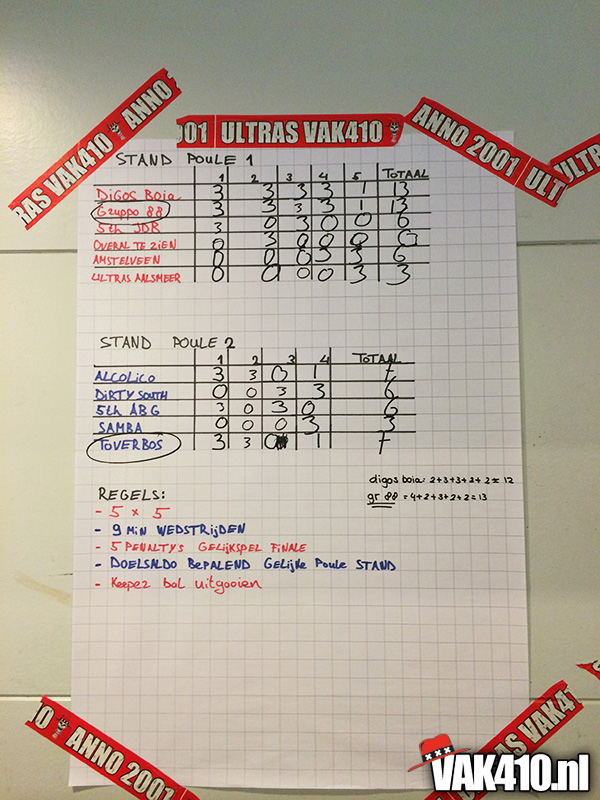 RAS VAK410 ANNO
001 ULTRAS VAK410
ANNO 2001 ULT
ULTRAS
STAND POULE 1
1 2 3 4 5 TOTAAL
DIGOS BOIA 3 3 3 3 1 13
GRUPPO 88 3 3 3 3 1 13
5th JDR 3 0 3 0 0 6
OVERAL TE ZIEN 0 3 0 0 0 0
AMSTELVEEN 0 0 0 3 3 6
ULTRAS AALSMEER 0 0 0 0 3 3
STAND POULE 2
1 2 3 4 TOTAAL
ALCOLICO 3 3 0 1 7
DIRTY SOUTH 0 0 3 3 6
5th ABG 3 0 3 0 6
SAMBA 0 0 0 3 3
TOVERBOS 3 3 0 1 7
digos boia: 2+3+3+2+2 = 12
gr 88 = 4+2+3+2+2=13
REGELS:
- 5 x 5
- 9 MIN WEDSTRIJDEN
- 5 PENALTYS GELIJKSPEL FINALE
- DOELSALDO BEPALEND GELIJKE POULE STAND
- Keeper bal uitgooien
0 ANNO 2001
RAS VAK4
VAK410.nl